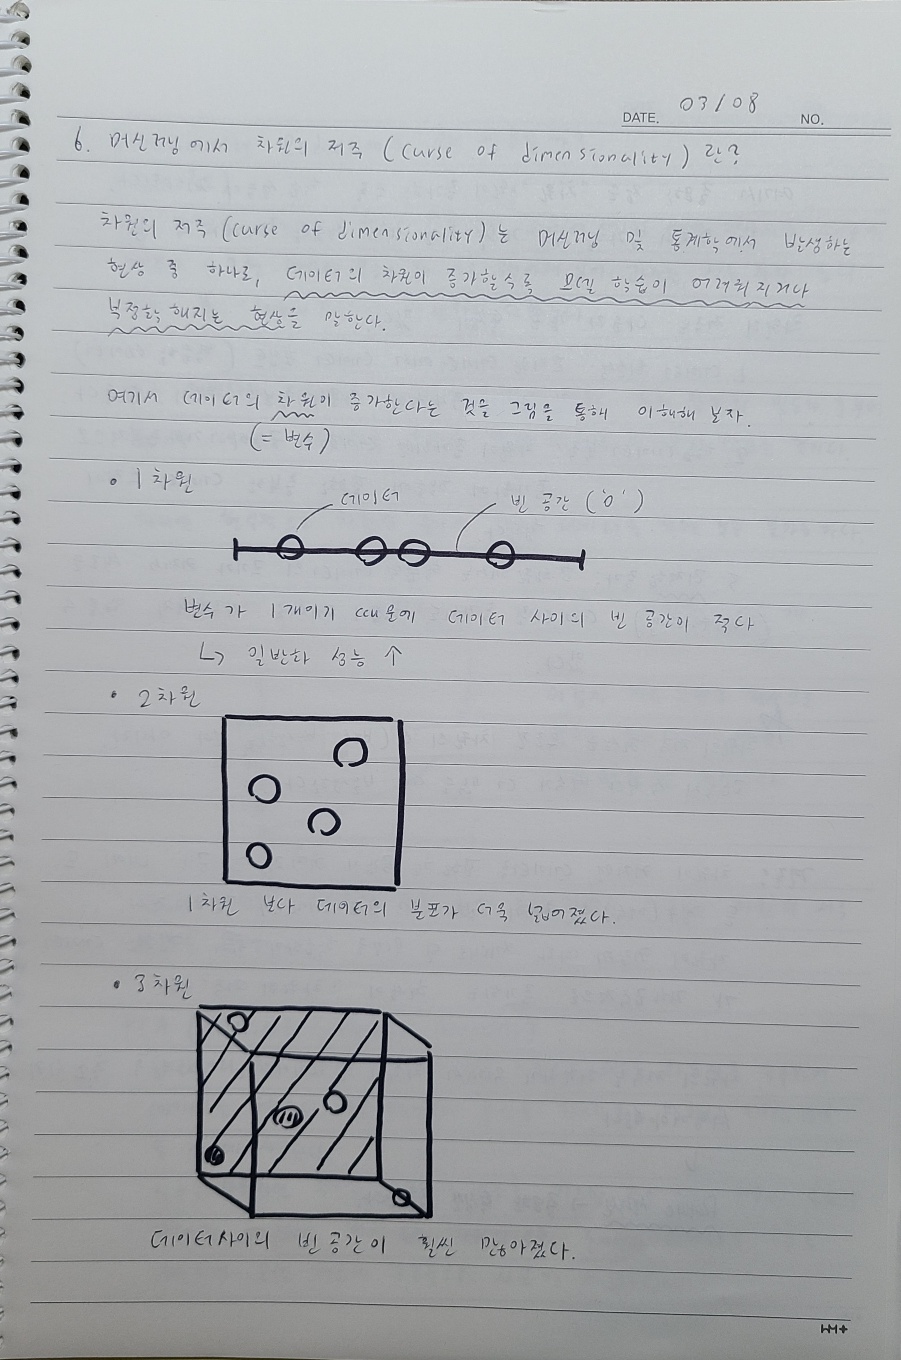 03/08
DATE.
NO.
6. 머신러닝에서 차원의 저주 (curse of dimensionality) 란?
차원의 저주 (curse of dimensionality)는 머신러닝 및 통계학에서 발생하는
현상 중 하나로, 데이터의 차원이 증가할수록 모델 학습이 어려워지거나
부정확해지는 현상을 말한다.
여기서 데이터의 차원이 증가한다는 것을 그림을 통해 이해해 보자.
(= 변수)
• 1차원
데이터
빈 공간 ('0')
변수가 1개이기 때문에 데이터 사이의 빈 공간이 적다
↳ 일반화 성능 ↑
• 2차원
1차원 보다 데이터의 분포가 더욱 넓어졌다.
• 3차원
데이터사이의 빈 공간이 훨씬 많아졌다.